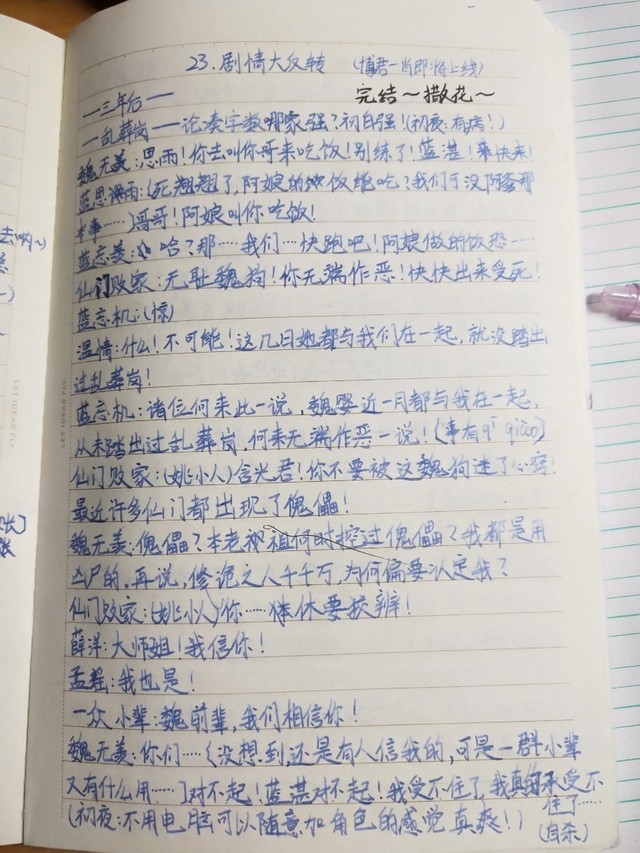 23.剧情大反转 (博君一肖即将上线)
完结~撒花~
——三年后——
—乱葬岗—论凑字数哪家强?初白强!(初夜:有病!)
魏无羡:思雨!你去叫你哥来吃饭!别练了!蓝湛!来快来!
蓝思雨:(死翘翘了,阿娘的饭能吃?我们于没阿爹那
本事……)哥哥!阿娘叫你吃饭!
蓝忘羡:哈?那……我们…快跑吧!阿娘做的饭恐……
仙门败家:无耻魏狗!你无端作恶!快快出来受死!
蓝忘机:(惊)
温情:什么!不可能!这几日她都与我们在一起,就没踏出
过乱葬岗!
蓝忘机:诸位何来此一说,魏婴近一月都与我在一起,
从未踏出过乱葬岗,何来无端作恶一说!
仙门败家:(姚小人)含光君!你不要被这魏狗迷了心窍!
最近许多仙门都出现了傀儡!
魏无羡:傀儡?本老祖何时控过傀儡?我都是用
凶尸的,再说,修诡之人千千万,为何偏要认定我?
仙门败家:(姚小人)你……体休要狡辨!
薛洋:大师姐!我信你!
孟瑶:我也是!
一众小辈:魏前辈,我们相信你!
魏无羡:你们……(没想到还是有人信我的,可是一群小辈
又有什么用……)对不起!蓝湛对不起!我受不住了,我真的承受不
住了……
(自杀)
(初夜:不用电脑可以随意加角色的感觉真爽!)
LET IDEAS FLY